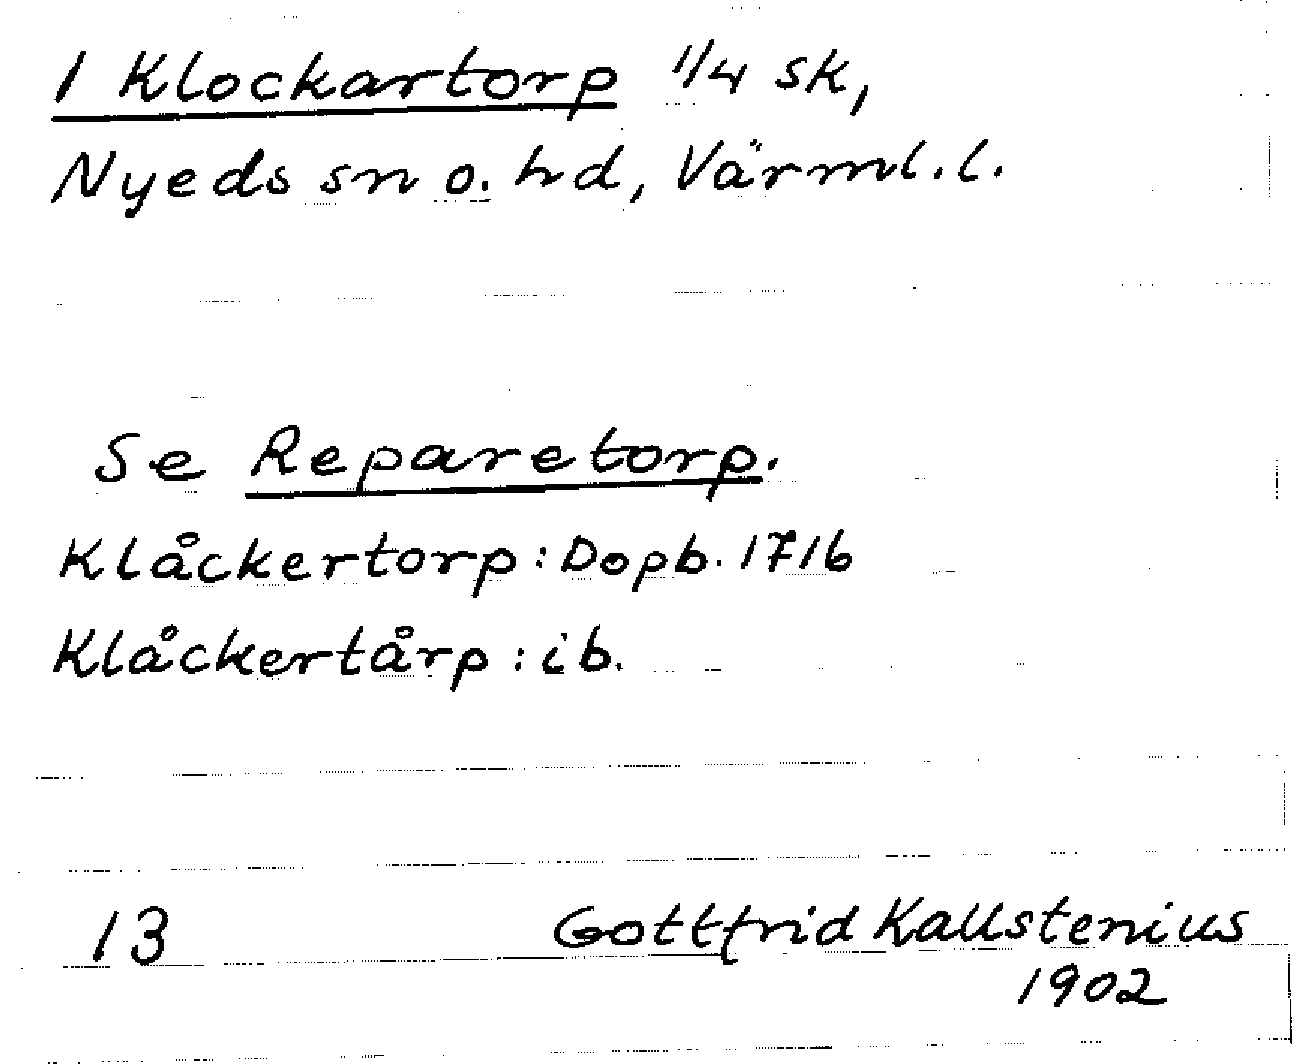 1 Klockartorp 1/4 sk,
Nyeds sn o. hd, Värml. l.
Se Reparetorp.
Klåckertorp: Dopb. 1716
Klåckertårp: ib.
13 Gottfrid Kallstenius
1902